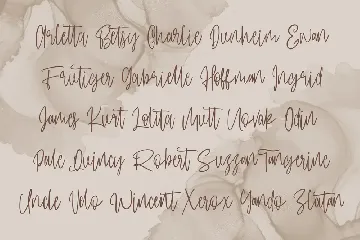 Arletta Betsy Charlie Dunheim Ewan
Frutiger Gabrielle Hoffman Ingrid
James Kurt Lolita Mutt Novak Odin
Pale Quincy Robert Suzzan Tangerine
Uncle Volo Wincent Xerox Yando Zlatan